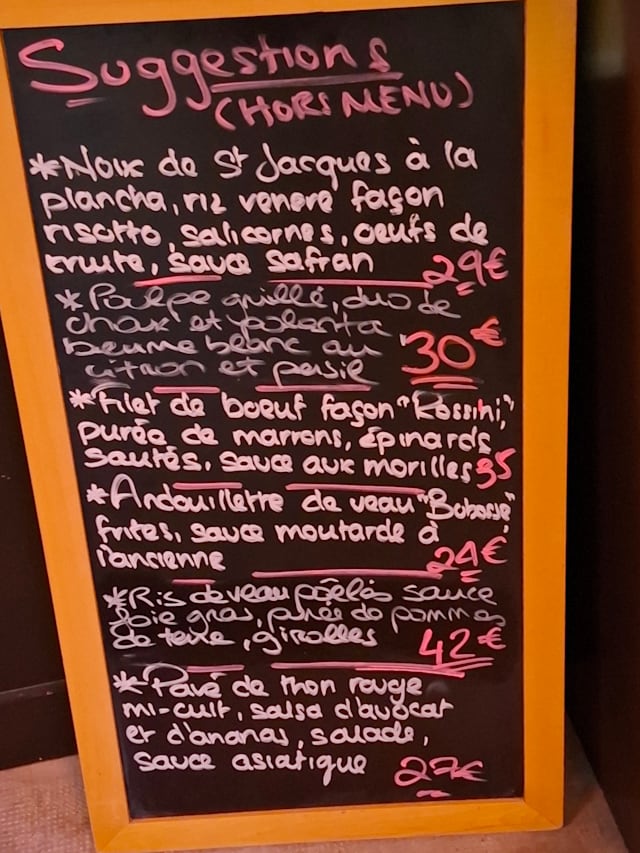 Suggestions
(HORS MENU)
*Noix de St Jacques à la
plancha, riz venere façon
risotto, salicornes, oeufs de
truite, sauce safran 29€
*Poulpe grillé, duo de
choux et polenta
beurre blanc au
citron et persil 30€
*Filet de boeuf façon "Rossini",
purée de marrons, épinards
sautés, sauce aux morilles 35
*Andouillette de veau "Bobosse"
frites, sauce moutarde à
l'ancienne 24€
*Ris de veau poêlés sauce
foie gras, purée de pommes
de terre, girolles 42€
*Pavé de thon rouge
mi-cuit, salsa d'avocat
et d'ananas, salade,
sauce asiatique 27€